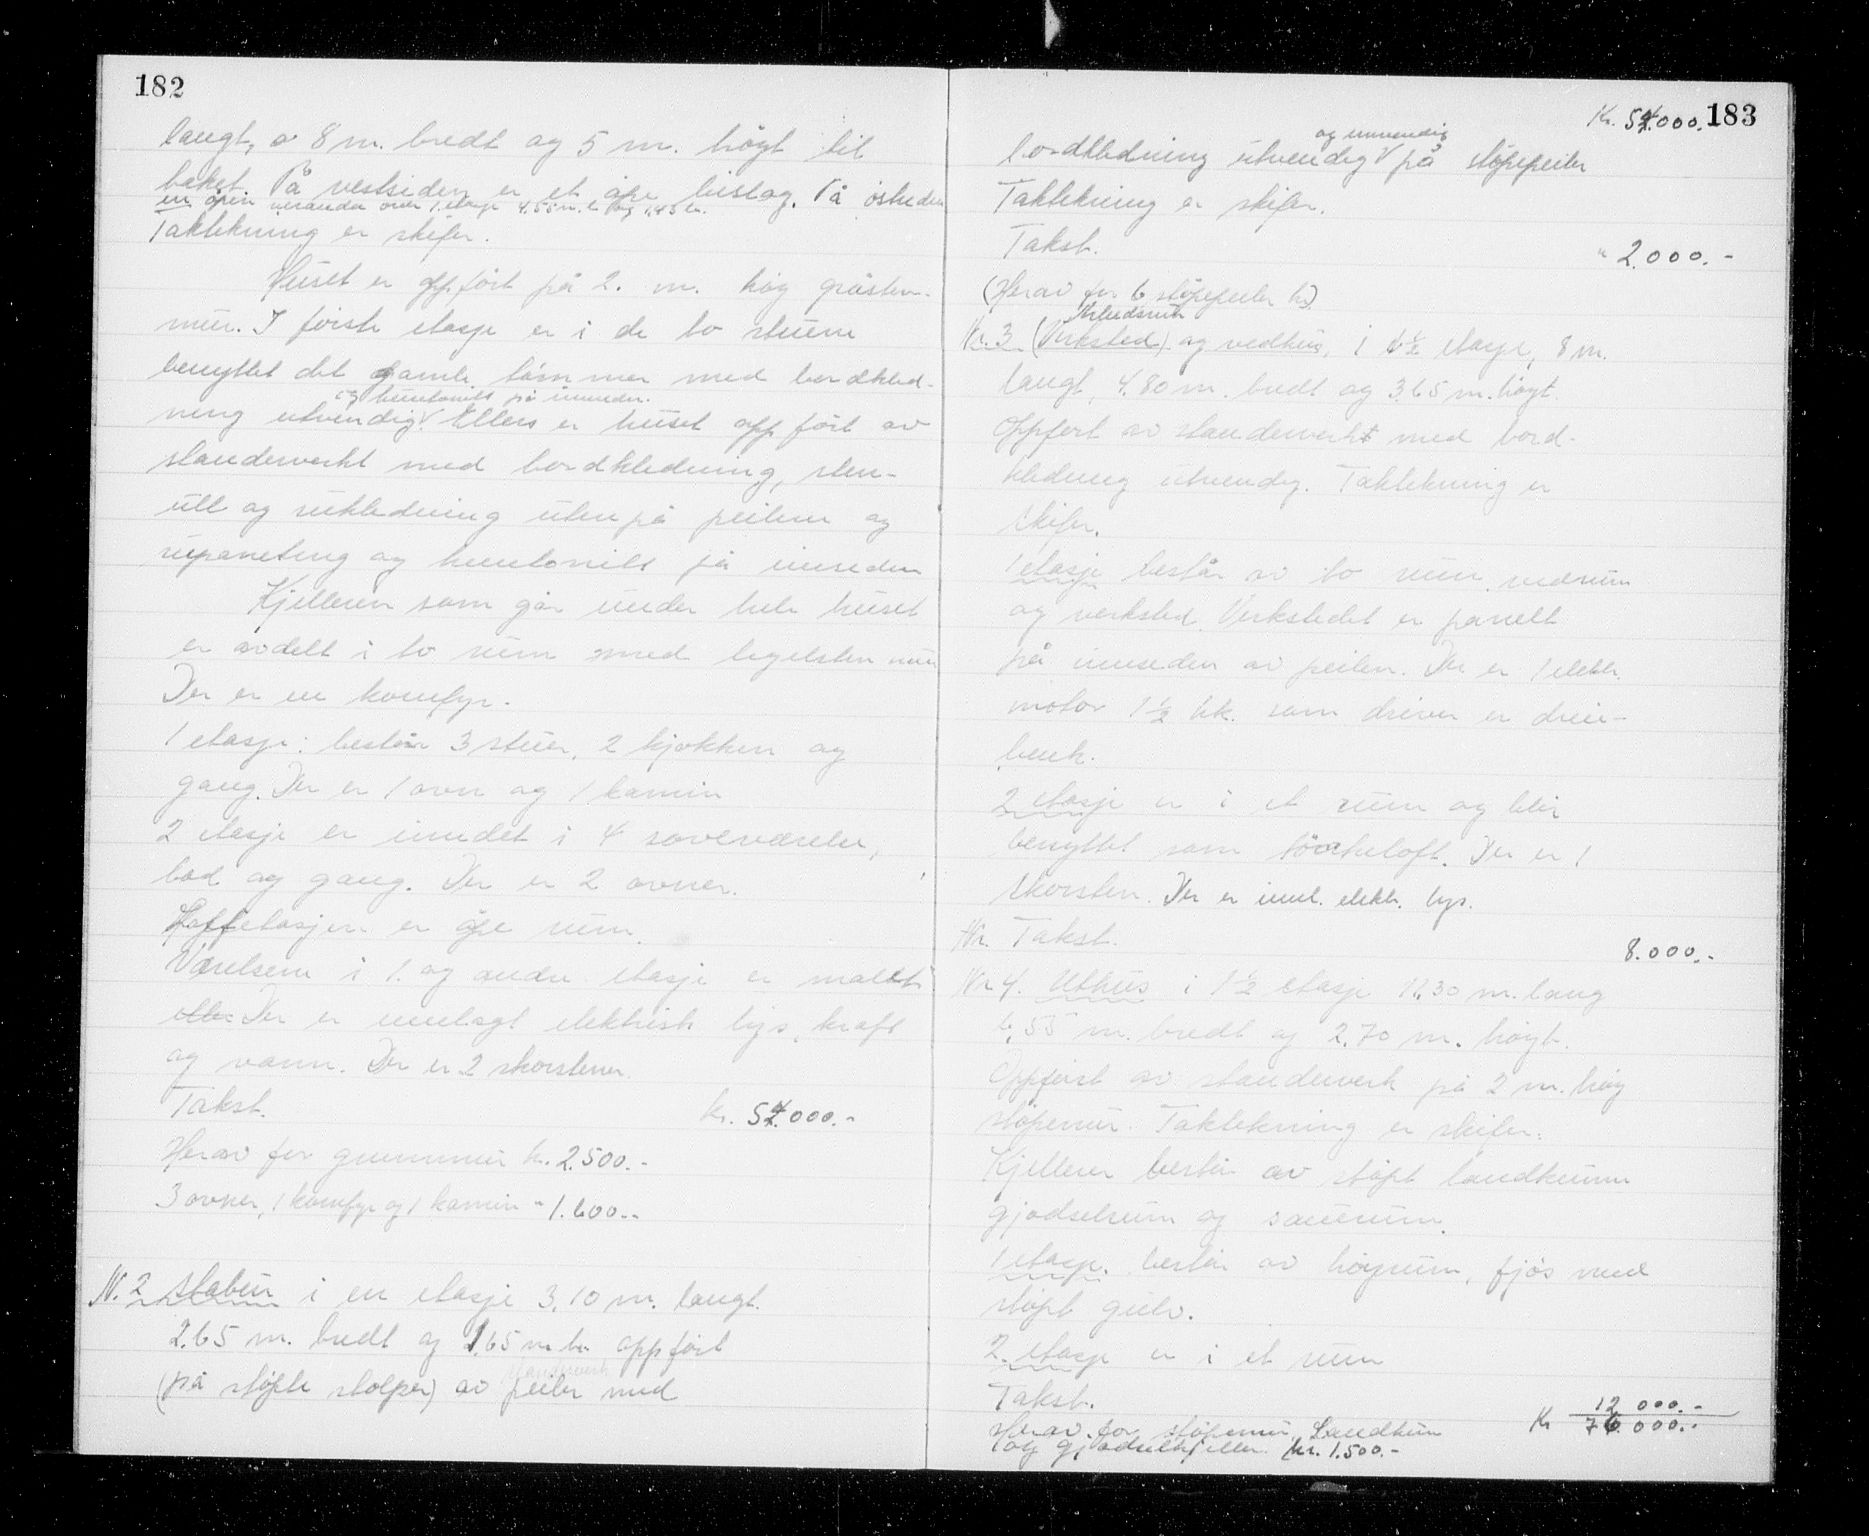 182
langt, 8 m. bredt og 5 m. høgt til
taket. På vestsiden er et åpe bislag. På østsiden
en åpen veranda over 1. etasje 4.55 m. l og 1,45 br.
Taktekning er skifer.
Huset er oppført på 2. m. høg gråsten-
mur. I første etasje er i de to stuene
benyttet det gamle tømmer med bordkled-
og huntonit på innsiden.
ning utvendig. Ellers er huset oppført av
standerverkt med bordkledning, sten-
ull og rukledning utenpå peilene og
rupaneling og huntonitt på innsiden
Kjelleren som går under hele huset
er avdelt i to rum med teglsten mur
Der er en komfyr.
1 etasje: består 3 stuer, 2 kjøkken og
gang. Der er 1 ovn og 1 kamin
2 etasje er inndet i 4 soveværelser,
bad og gang. Der er 2 ovner.
Loftetasjen er åpe rum.
Værelsene i 1. og andre etasje er malet
eller Der er innlagt elektrisk lys, kraft
og vann. Der er 2 skorstener.
Takst. kr. 54.000.-
Herav for grunnmur kr. 2.500.-
3 ovner, 1 komfyr og 1 kamin " 1.600.-
N. 2 Stabur i en etasje 3,10 m. langt.
2.65 m. bredt og 1.65 m hø oppført
standerverk
(på støpte stolper) av peiler med
183
Kr. 54.000.
og innvendig
bordkledning utvendig på støpepeiler
Taktekning er skifer.
Takst. " 2.000.-
(Herav for 6 støpepeiler kr)
Arbeidsrum
Nr. 3 (Verksted) og vedhus, i 1½ etasje, 8 m.
langt, 4.80 m. bredt og 3.65 m. høgt.
Oppført av standerverkt med bord-
kledning utvendig. Taktekning er
skifer.
1 etasje består av to rum, vedrum
og verksted. Verkstedet er panelt
på innsiden av peilen. Der er 1 elektr.
motor 1½ hk. som driver er dreie-
benk.
2 etasje er i et rum og blir
benyttet som tørkeloft. Der er 1
skorsten. Der er innl. elektr. lys.
Nr. Takst. 8.000.-
Nr 4. Uthus i 1½ etasje 11,30 m. lang
6,55 m. bredt og 2.70 m. høgt.
Oppført av standerverk på 2 m. høg
støpemur. Taktekning er skifer.
Kjelleren består av støpt landkumme
gjødselrum og sauerum.
1 etasje. består av høyrum, fjøs med
støpt gulv.
2. etasje er i et rum
Takst. 12 000.-
Herav for støpemur, Landkum Kr 76.000.-
og gjødselkjeller. kr. 1.500.-